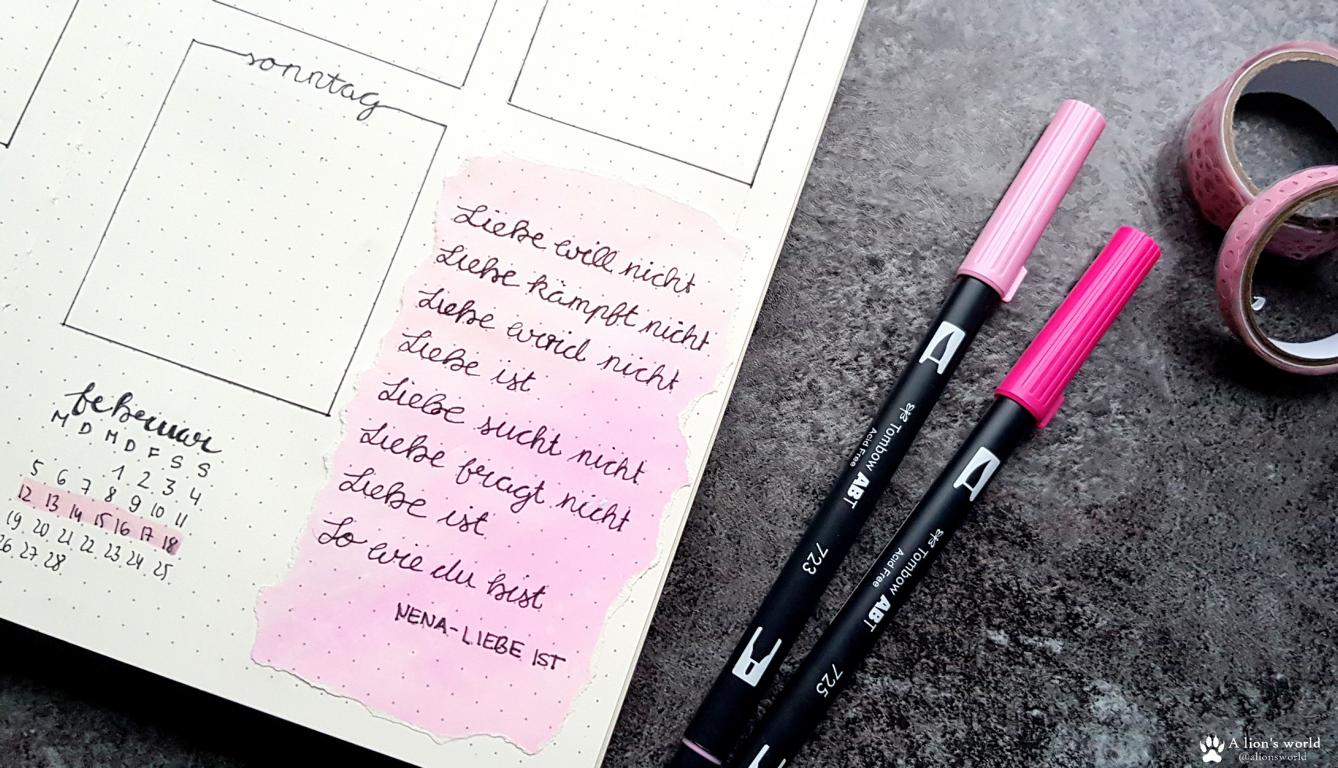 sonntag
Liebe will nicht
Liebe kämpft nicht
Liebe wird nicht
Liebe ist
Liebe sucht nicht
Liebe fragt nicht
Liebe ist
So wie du bist
NENA-LIEBE IST
februar
M D M D F S S
1 2 3 4
5 6 7 8 9 10 11
12 13 14 15 16 17 18
19 20 21 22 23 24 25
26 27 28
Tombow ABT
Acid Free
723
Tombow ABT
Acid Free
725
A lion's world
@alionsworld